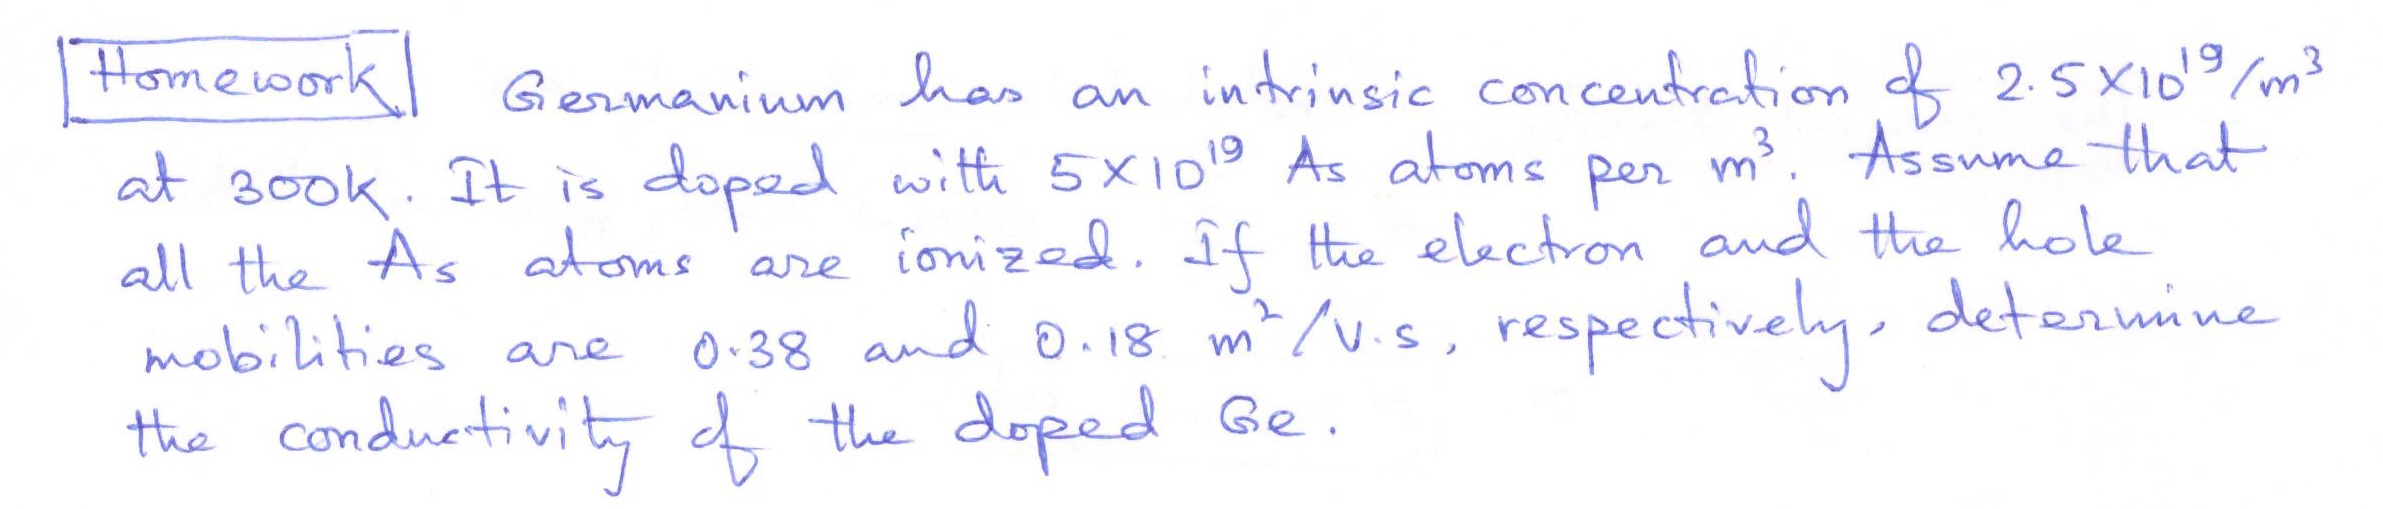 Homework Germanium has an intrinsic concentration of 2.5×10¹⁹/m³
at 300K. It is doped with 5×10¹⁹ As atoms per m³. Assume that
all the As atoms are ionized. If the electron and the hole
mobilities are 0.38 and 0.18 m²/V.s, respectively, determine
the conductivity of the doped Ge.